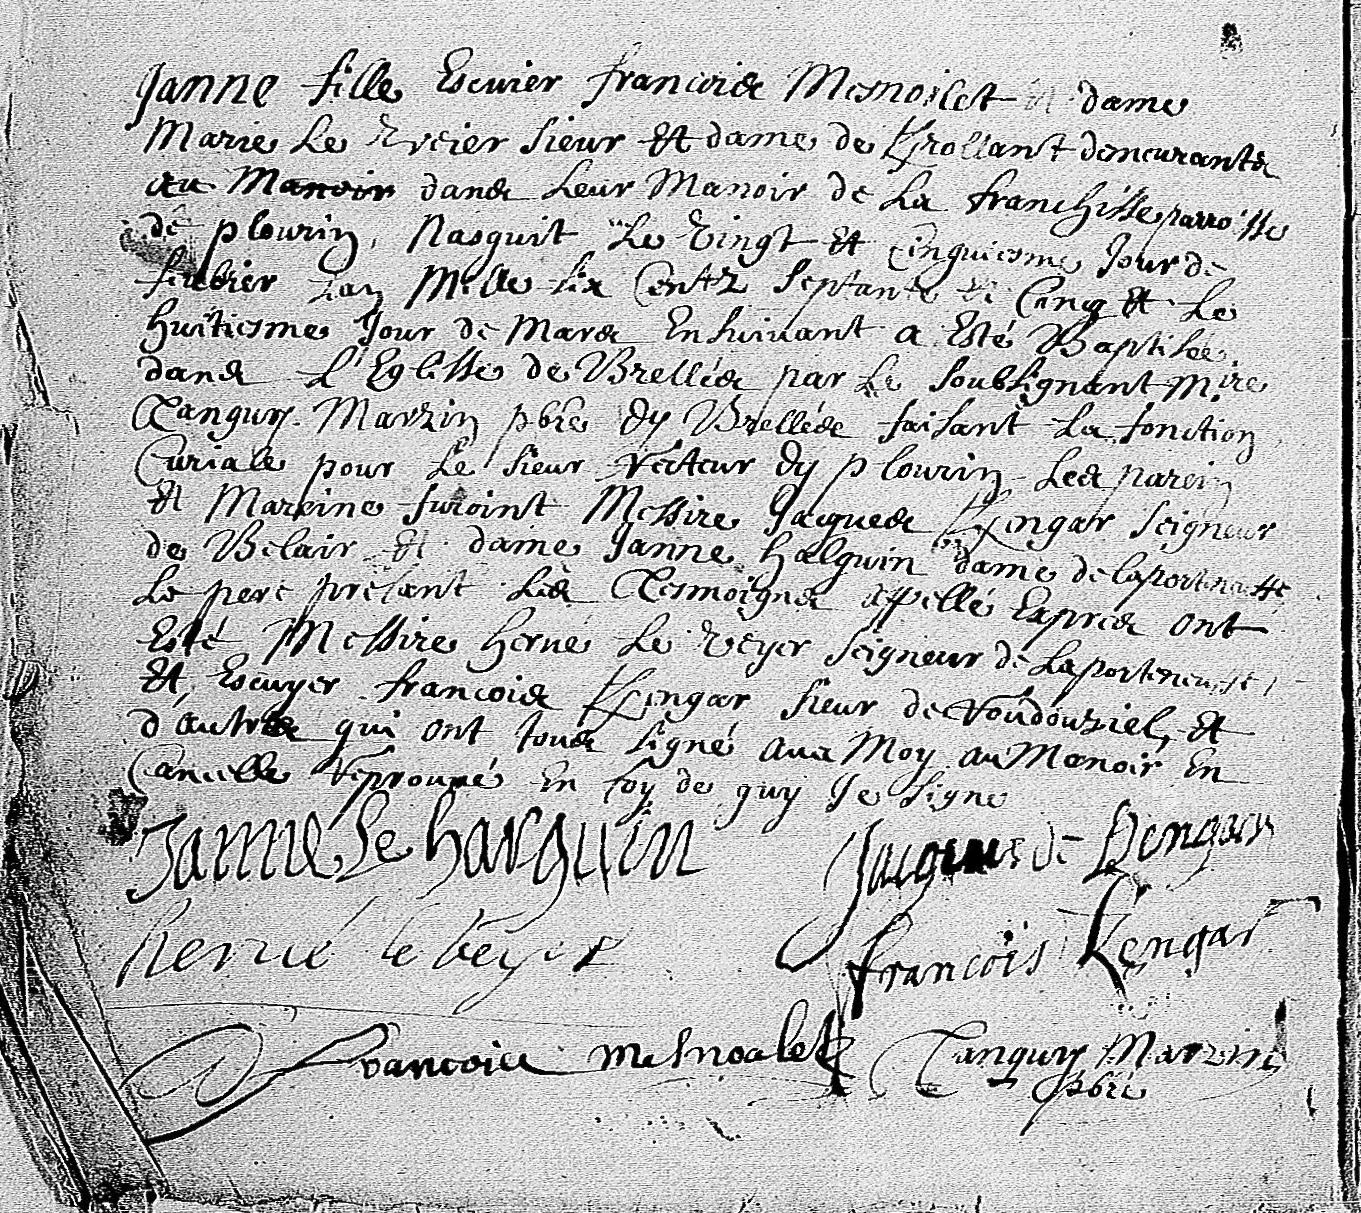 Janne fille Escuier francois Mesnoilet et dame
Marie Le Veier sieur et dame de Krollant demeurants
au Manoir dans Leur Manoir de La franchisse parroisse
de plourin, Nasquit Le Vingt et Cinquiesme Jour de
feubrier Lan Mille six Centz septante et Cinq et Le
Huitiesme Jour de Mars Ensuivant a Esté Baptisée
dans L'Eglisse de Brellés par Le soubsignant Mire
Tanguy Marzin pbre dy Brellés faisant La fonction
Curiale pour Le sieur Recteur dy plourin Les parein
et Mareine furoint Messire Jacques de Kengar seigneur
de Belair et dame Janne halguin dame de Laporteneusse
Le pere presant Les Tesmoigns appellé Expres ont
Esté Messire herué Le Veyer seigneur de Laporteneusse
Et Escuyer francois Kengar sieur de Voudouziel, et
d'autres qui ont tous signé aux Moy au Manoir En
Cancelle Reprouué En foy de quy Je signe
Janne Le harguin Jacques de Kengar
hervé le veyer francois Kengar
francois mesnoalet Tanguy Marzin
pbre